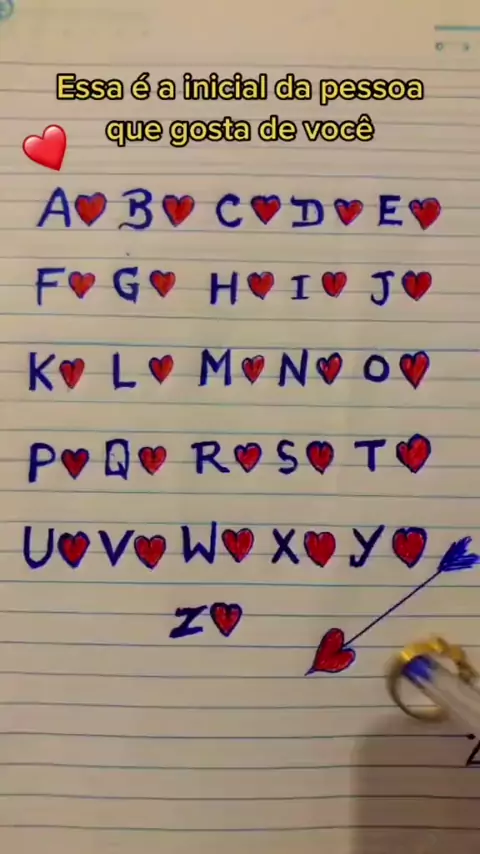 Essa é a inicial da pessoa
que gosta de você
A B C D E
F G H I J
K L M N O
P Q R S T
U V W X Y
Z